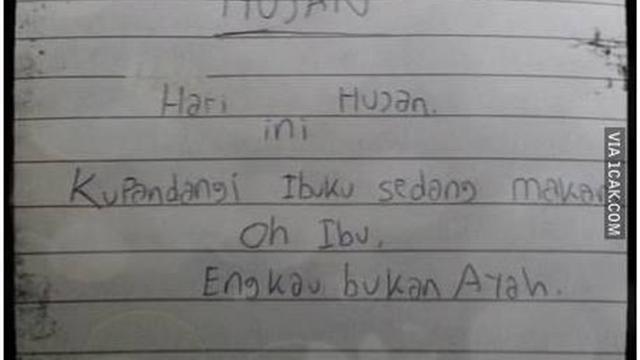 HUJAN
Hari ini Hujan.
Kupandangi Ibuku sedang makan
Oh Ibu,
Engkau bukan Ayah.
VIA 1CAK.COM